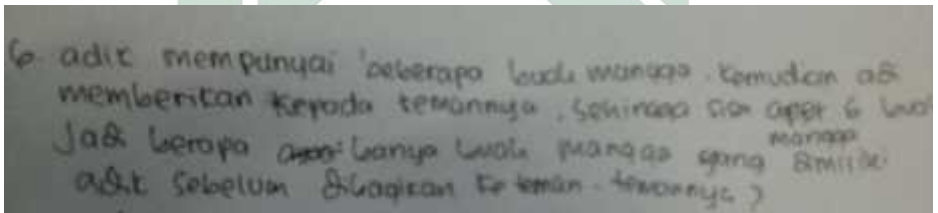 6. adik mempunyai beberapa buah mangga. kemudian adi
memberikan kepada temannya, sehingga sisa apel 6 bua
Jadi berapa banya buah mangga yang dimiliki
mangga
adik sebelum dibagikan ke teman-temannya?